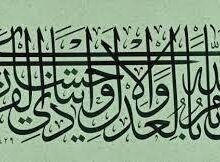 الله يأمر بالعدل والإحسان وإيتاء ذي القر